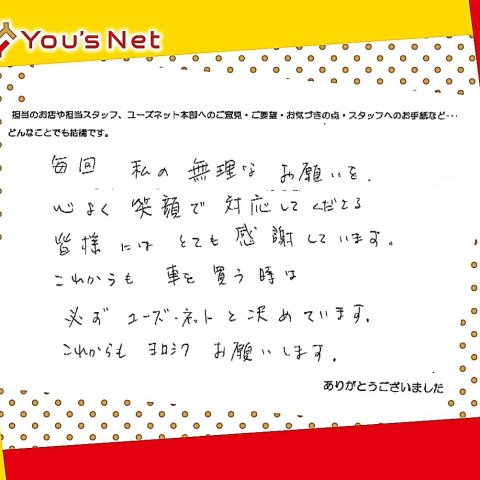 You's Net
担当のお店や担当スタッフ、ユーズネット本部へのご意見・ご要望・お気づきの点・スタッフへのお手紙など…
どんなことでも結構です。
毎回 私の無理なお願いを、
心よく笑顔で対応してくださる
皆様にはとても感謝しています。
これからも 車を買う時は
必ずユーズ・ネットと決めています。
これからもヨロシクお願いします。
ありがとうございました